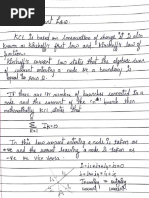 Current Law
KCL is based on Conservation of charge it is also
known as Kirchoff's first law and Kirchoff's law of
junction.
Kirchoff's current law states that the algebraic sum
of current entering a node or a boundary is
equal to zero.
If there are 'n' number of branches connected to a
node and the current of the nth branch then
mathematically KCL states that
Σ IK=0
K=1
In this law current entering a node is taken as
+ve and the current leaving a node is taken as
-ve or vice versa
entering =
current